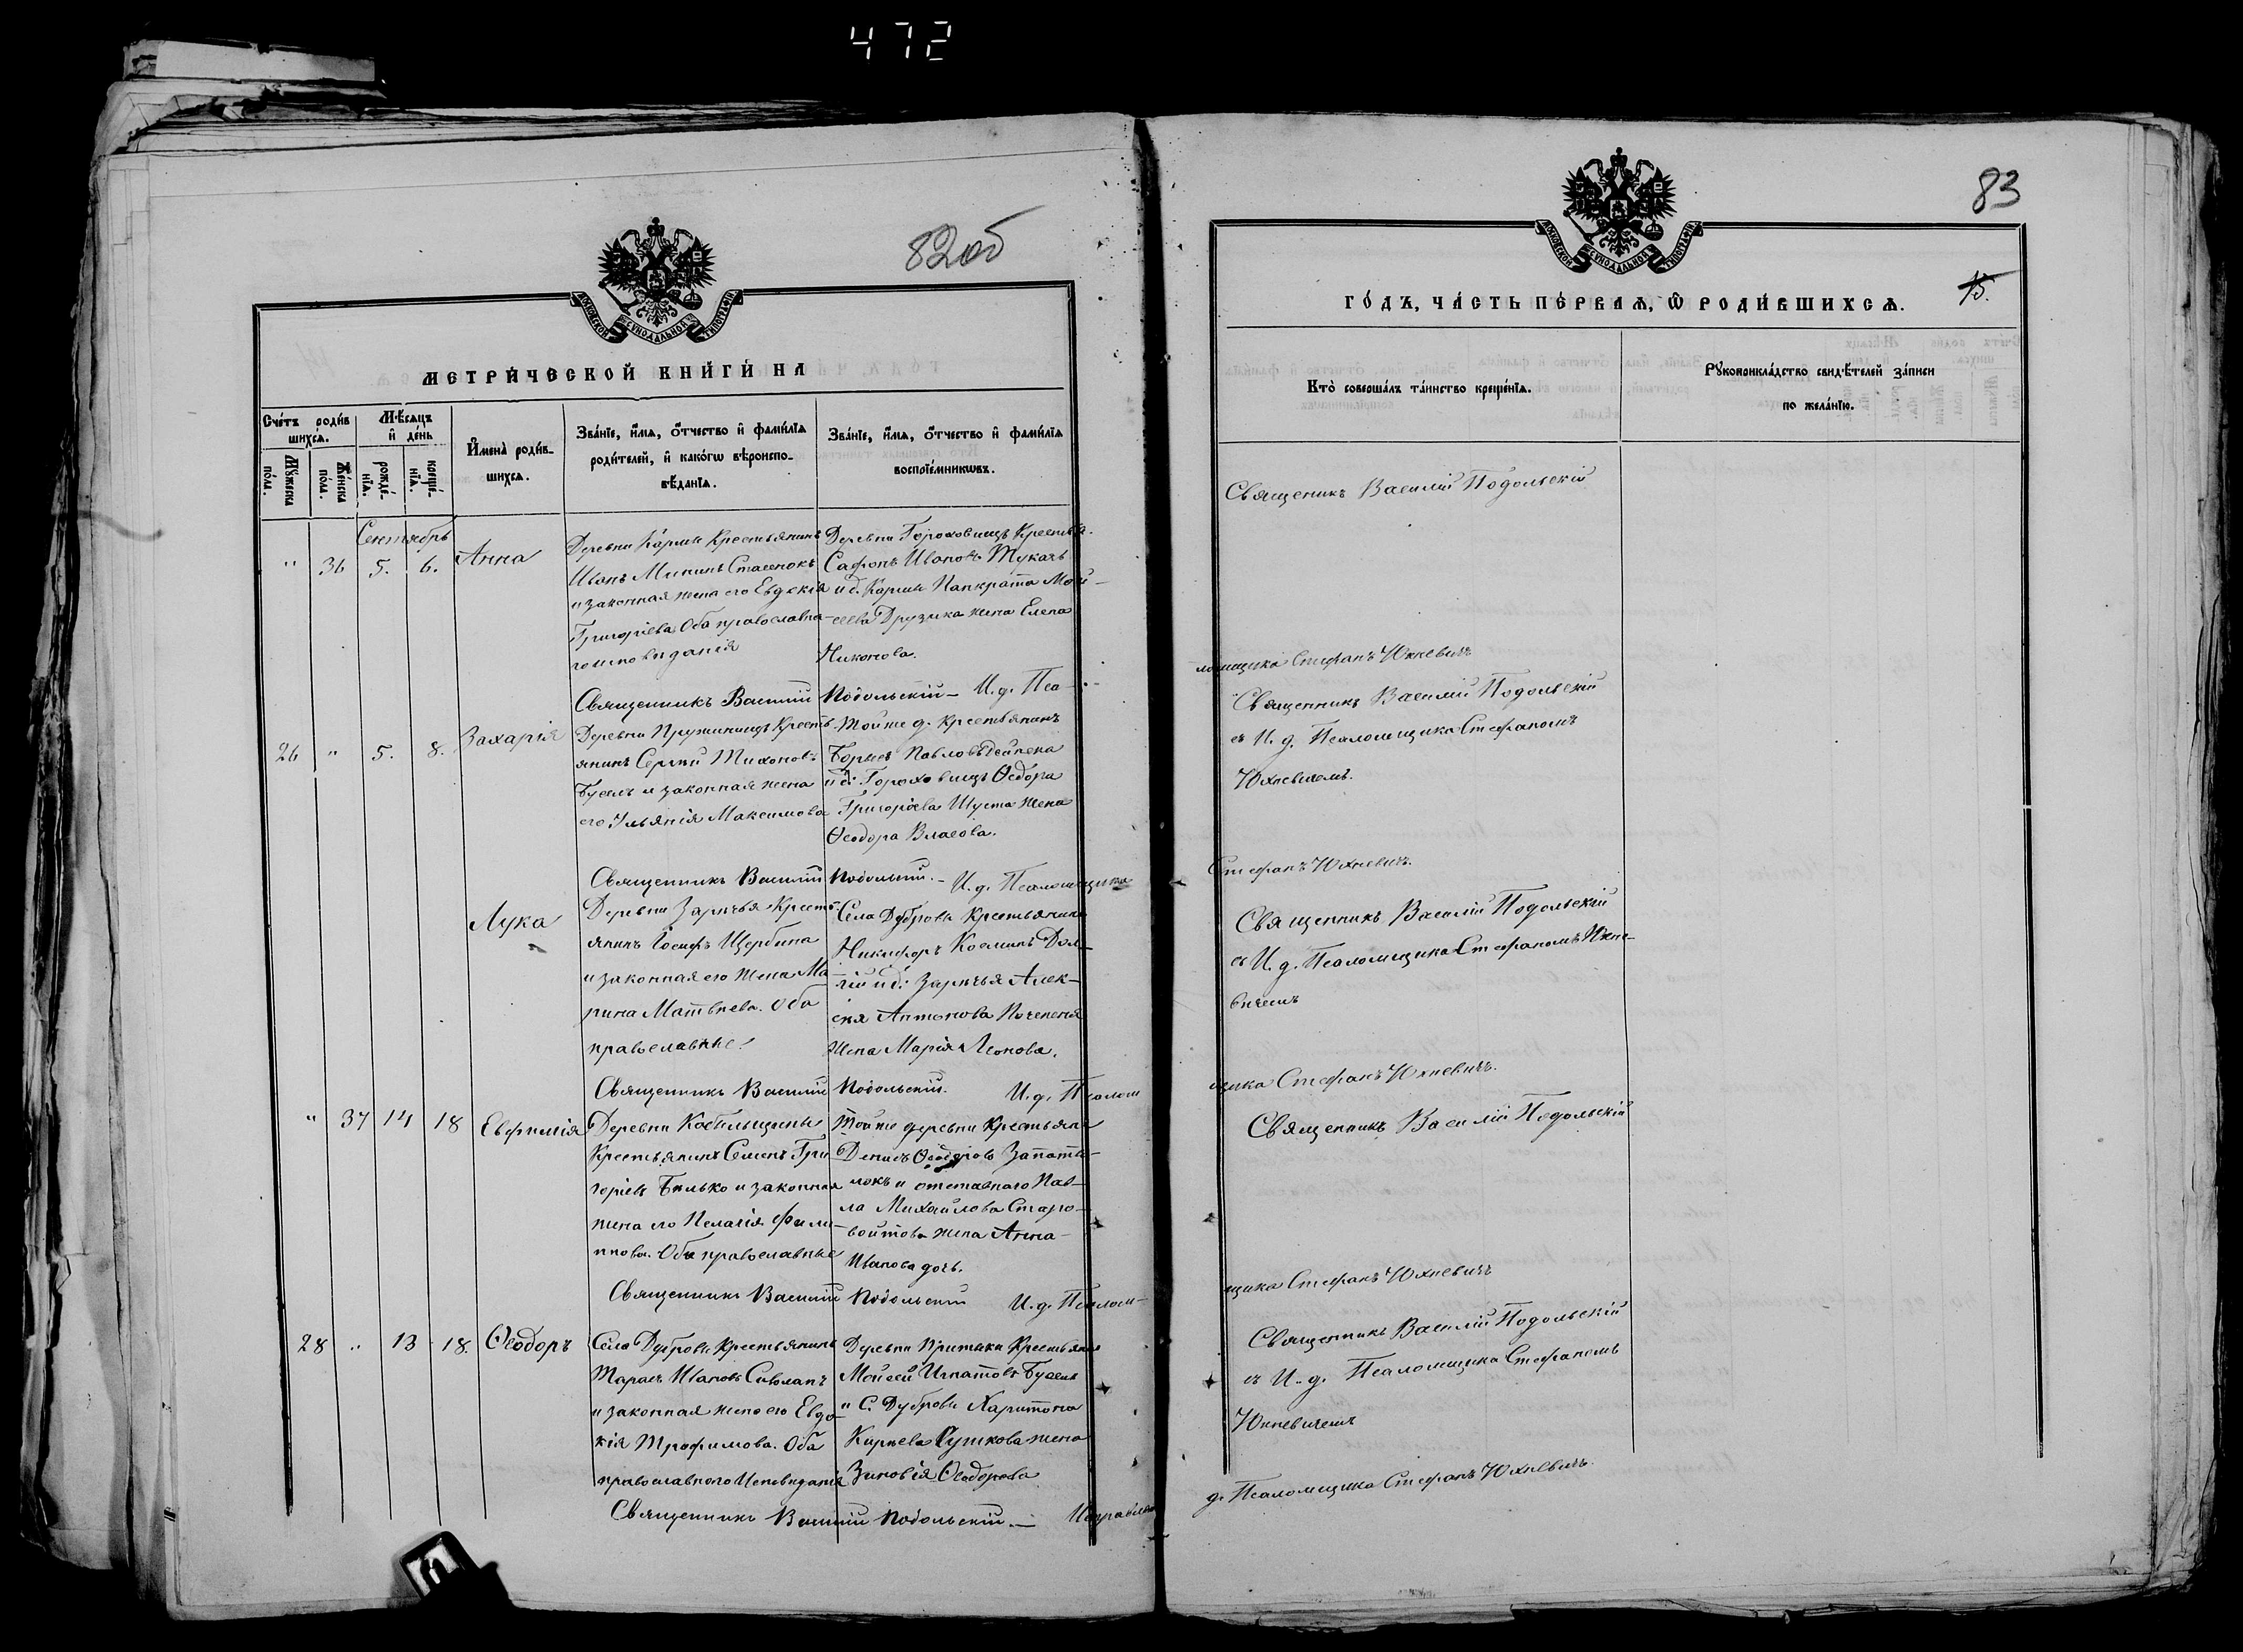 472
82об
МОСКОВСКОЙ СѴНОДАЛЬНОЙ ТИПОГРАФІИ
МЕТРИ́ЧЕСКОЙ КНИ́ГИ НА
Сче́тъ роди́в
шихсѧ.
Мꙋжеска по́ла.
Же́нска по́ла.
Мѣ́сѧцъ и҆ де́нь
рожде́нїѧ.
креще́нїѧ.
И҆мена̀ роди́в-
шихсѧ.
Зва́нїе, и҆́мѧ, ѻ҆́тчество и҆ фами́лїѧ
роди́телей, и҆ како́гѡ вѣроиспо-
вѣ́данїѧ.
Зва́нїе, и҆́мѧ, ѻ҆́тчество и҆ фами́лїѧ
воспрїе́мникѡвъ.
Сентябрь
" 36 5. 6. Анна
Деревни Карпи Крестьянинъ
Иванъ Мининъ Стасенокъ
и законная жена его Евдокія
Григоріева Оба православна-
го исповѣданія
Деревни Гороховищъ Крестья.
Сафонъ Ивановъ Жукавъ
и д. Карпи Панкрата Мои-
сеева Друзика жена Елена
Никонова.
Священникъ Василій Подольскій – И. д. Пса-
26 " 5. 8. Захарія
Деревни Пружинищъ Кресть
янинъ Сергій Тихоновъ
Бусель и законная жена
его Ульянія Максимова
Тойже д. крестьянинъ
Борисъ Павловъ Дейнека
и д: Гороховищъ Ѳедора
Григоріева Шуста жена
Ѳеодора Власова.
Священникъ Василій Подольскій. – И. д. Псаломщика
Лука
Деревни Зарѣчья Кресть-
янинъ Іосифъ Щербина
и законная его жена Ма-
рина Матвѣева. Оба
православные.
Села Дубровы Крестьянинъ
Никифоръ Косминъ Дол-
гій и д: Зарѣчья Алек-
сѣя Антонова
жена Марія Леонова.
Священникъ Василій Подольскій. И. д. Псалом
" 37 14 18 Евфимія
Деревни Кобыльщины
Крестьянинъ Семенъ Гри
горіевъ Билько и законная
жена его Пелагія Фили-
ппова. Оба православные
Тойже деревни Крестьянин
Денисъ Ѳеодоровъ Запаты-
локъ и отставного Пав-
ла Михайлова Старо-
войтова жена Анна-
Иванова дочь.
Священникъ Василій Подольскій И. д. Псалом-
28 " 13 18. Ѳеодоръ
Села Дубровы Крестьянинъ
Тарасъ Ивановъ
и законная жена его Евдо-
кія Трофимова. Оба
православного Исповѣданія
Деревни Притыки Крестьянин
Моисей Игнатовъ Бусель
и С. Дубровы Харитона
Карнева Сушкова жена
Зиновія Ѳеодорова
Священникъ Василій Подольскій. –
83
15.
МОСКОВСКОЙ СѴНОДАЛЬНОЙ ТИПОГРАФІИ
ГО́ДЪ, ЧА́СТЬ ПЕ́РВАѦ, Ѡ҆ РОДИ́ВШИХСѦ.
Кто̀ соверша́лъ та́инство креще́нїѧ.
Рꙋкоприкла́дство свидѣ́телей за́писи
по жела́нїю.
Священникъ Василій Подольскій
ломщика Стефанъ Юхневичъ
Священникъ Василій Подольскій
съ И. д. Псаломщика Стефаномъ
Юхневичемъ.
Стефанъ Юхневичъ.
Священникъ Василій Подольскій
съ И. д. Псаломщика Стефаномъ Юхне-
вичемъ
щика Стефанъ Юхневичъ.
Священникъ Василій Подольскій
щика Стефанъ Юхневичъ
Священникъ Василій Подольскій
съ И. д. Псаломщика Стефаномъ
Юхневичемъ
д. Псаломщика Стефанъ Юхневичъ.